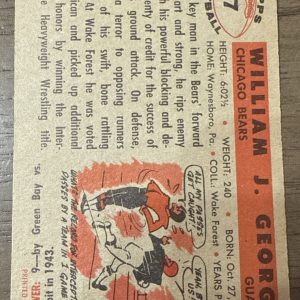 PPS
FOOTBALL
7
WILLIAM J. GEORG
CHICAGO BEARS
GUA
HEIGHT: 6:02½ • WEIGHT: 240 • BORN: Oct. 27
HOME: Waynesboro, Pa. • COLL: Wake Forest • YEARS
key man in the Bears' forward
art and strong, he rips enemy
with his powerful blocking and de-
plenty of credit for the success of
ground attack. On defense,
a terror to opposing runners
of his swift, bone rattling
At Wake Forest he was voted
ican and picked up additional
honors by winning the Inter-
e Heavyweight Wrestling title.
ALL MY PASSES
GET CAUGHT..
YEAH,
BY A TEAM IN 1 GAME
it in 1943.
ER: 9—by Green Bay vs.
PRINTED